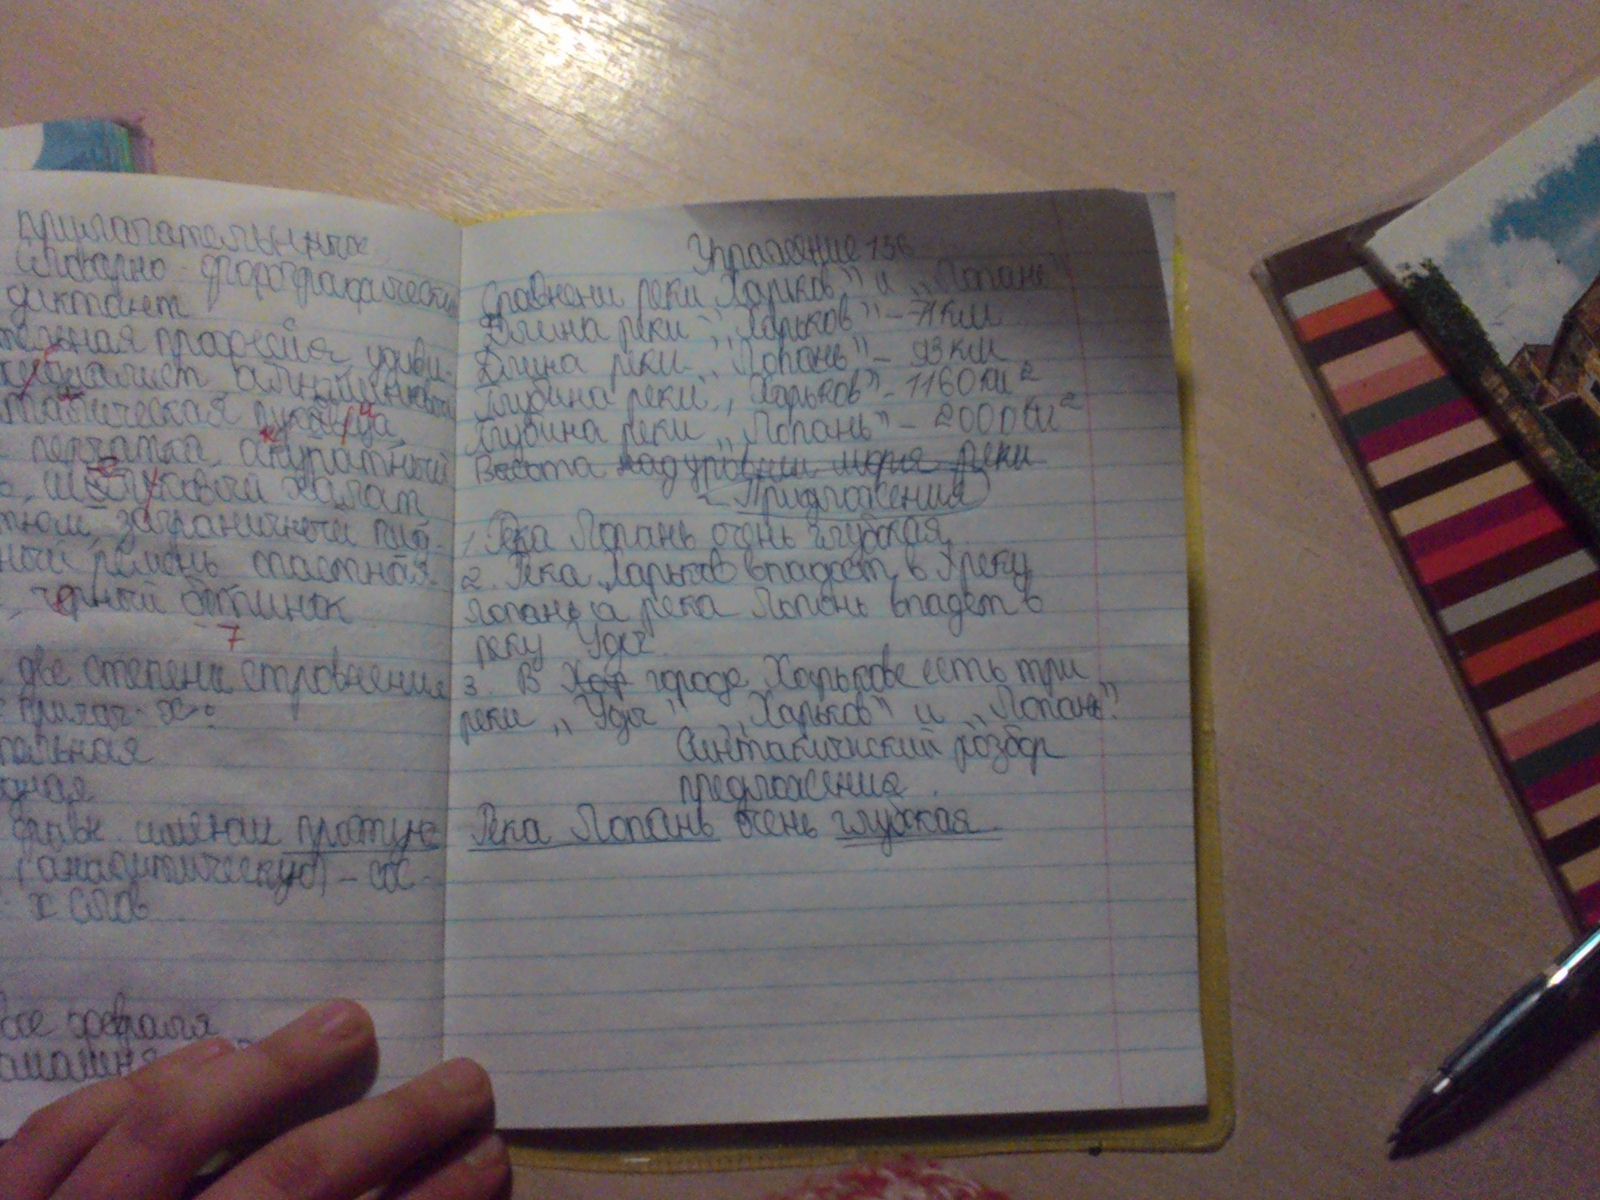 прилагательные
Словарно-орфографический
диктант
тельная профессия, удиви
ническая
перчатки акуратный
шёлковый халат
заграничный
ный ремень
чёрный ботинок
7
две степени стровнения
прилаг-х:
альная
простую
(аналитическую) – сос-
х слов
февраля
Упражнение 156
Сравнени реки Харьков" и „Лопань"
Длина реки „Харьков" – 71км
Длина реки „Лопань" – 93км
Глубина реки „Харьков" – 1160км²
Глубина реки „Лопань" – 2000км²
Высота над уровнем моря реки
Придложения
1. Река Лопань очень глубокая
2. Река Харьков впадает в реку
Лопань а река Лопань впадет в
реку Уды
3. В Хар городе Харькове есть три
реки „Уды" „Харьков" и „Лопань".
Синтакичиский розбор
предложения.
Река Лопань очень глубокая